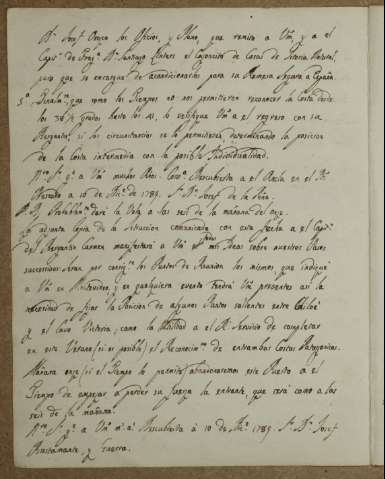 Dn. Josef Orozco los Oficios, y Plano, que remito a Vm, y a el
Capn. de Fragta. Dn. Santiago Liniers el Caxoncito de Cosas de Istoria Natural
para que se encargue de acondicionarlos para su Remesa Segura a España
que como los tiempos no nos permitieron reconocer la Costa desde
los grados hasta los 41, lo verifique Vm a el regreso con su
Bergantin, si las circunstancias se lo permitieren, determinando la posicion
de la Costa intermedia con la posible Individualidad.
Nro. Sr. ge. a Vm muchos años. Corva. Descubierta a el Ancla en el Pto.
Deseado a 10 de Dize. 1789. Sr. Dn. Josef de la Peña.
daré la Vela a las seis de la mañana del onze.
La adjunta Copia de la Instruccion comunicada con esta fecha a el Capn.
del Bergantin Carmen manifestará a Vm mis Ideas sobre nuestros Planes
succesivos seran por consigte. los Puntos de Reunion los mismos que indiqué
a Vm en Montevideo, y en qualquiera evento tendrá Vm presentes asi la
necesidad de fixar la Posicion de algunos Puntos salientes entre Chiloé
y el Cavo Victoria, como la utilidad a el Rl. Servicio de completar
en este Verano (si es posible) el Reconocimto. de entrambas Costas Patagonicas.
Mañana onze (si el tiempo lo permite) abandonaremos este Puerto a el
tiempo de empezar a perder su fuerza la entrante, que será como a las
seis de la mañana.
Nro. Sr. ge. a Vm ms. as. Descubierta a 10 de Dize. 1789. Sr. Dn. Josef
Bustamante, y Guerra.